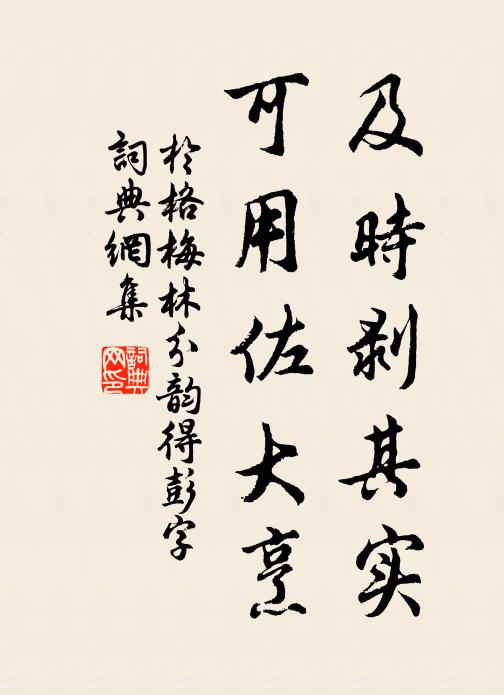 及時剥其实
可用佐大烹
於格梅林分韵得彭字
詞典網集
詞典网印